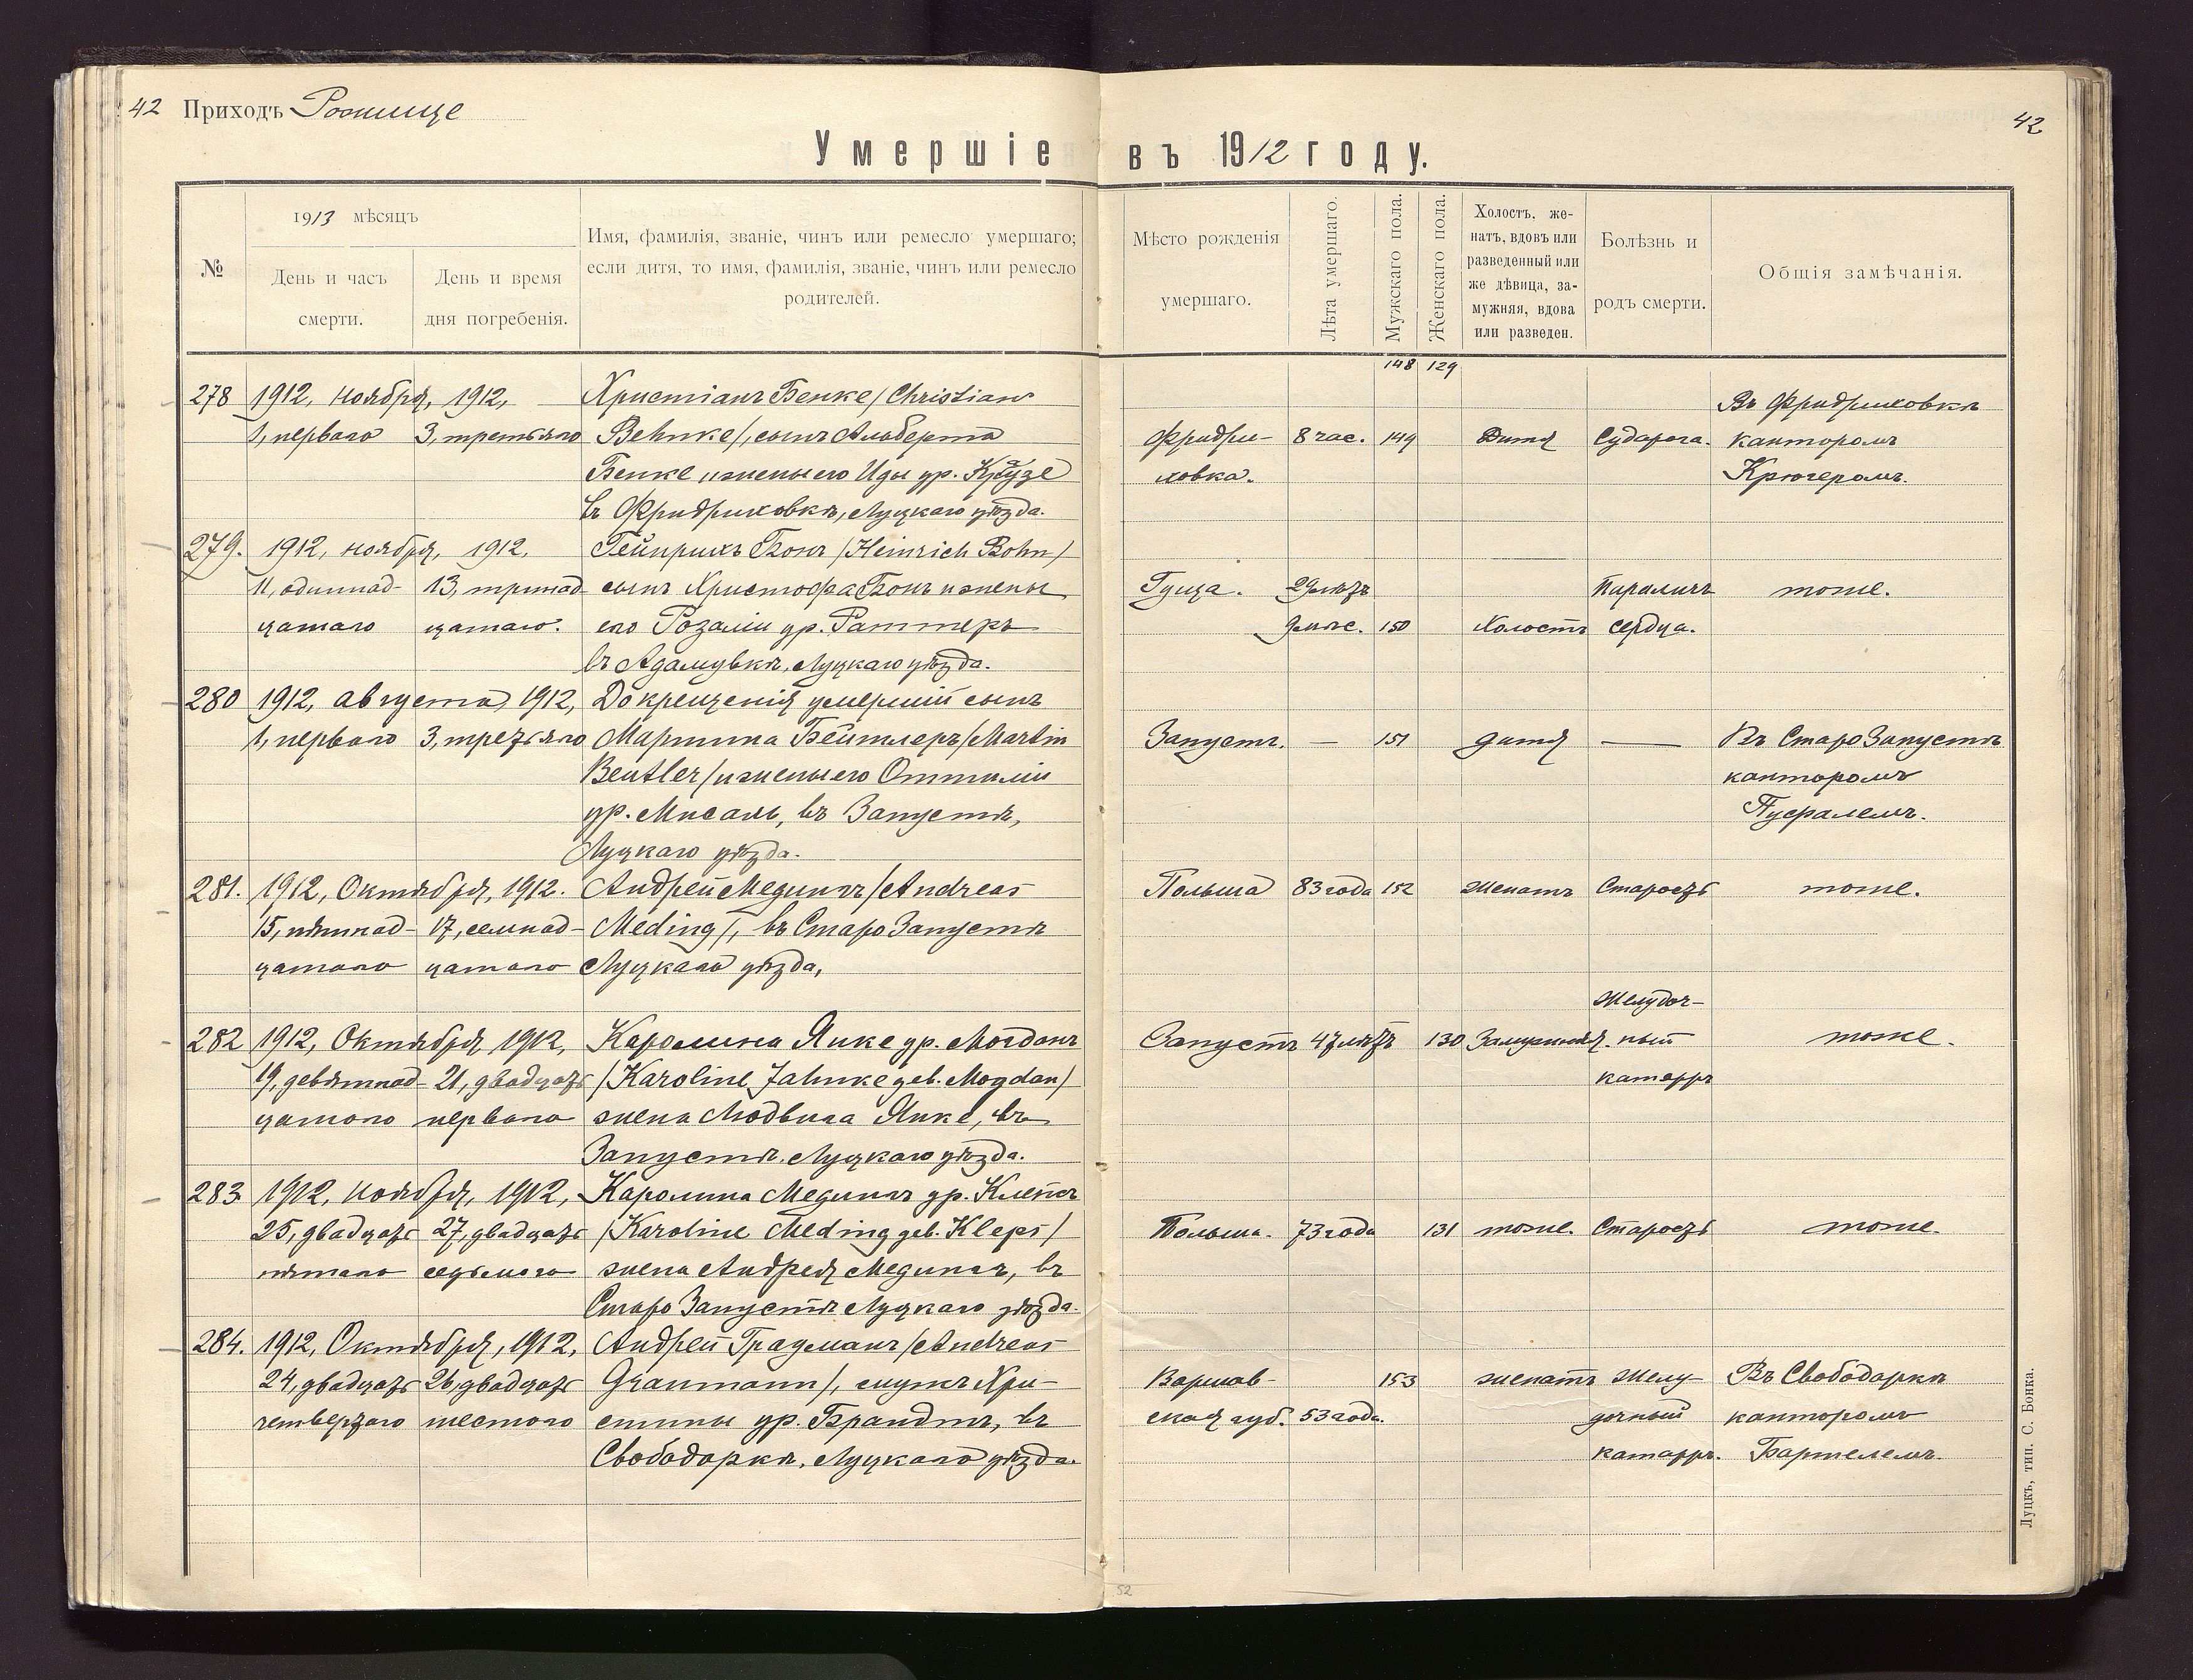 42 Приходъ Рожище
42
Умершіе въ 1912 году.
№
1913 мѣсяцъ
День и часъ смерти.
День и время дня погребенія.
Имя, фамилія, званіе, чинъ или ремесло умершаго;
если дитя, то имя, фамилія, званіе, чинъ или ремесло
родителей.
Мѣсто рожденія
умершаго.
Лѣта умершаго.
Мужскаго пола.
Женскаго пола.
Холостъ, же-
натъ, вдовъ или
разведенный или
же дѣвица, за-
мужняя, вдова
или разведен.
Болѣзнь и
родъ смерти.
Общія замѣчанія.
148 129
278 1912, ноября, 1912, Христіанъ Бенке /Christian
Въ Фридриховкѣ
1, перваго 3, третьяго Behnke/, сынъ Альберта
Фридри- 8 час. 149 Дитя Судорога. канторомъ
Бенке и жены его Иды ур. Краузе
ховка. Крюгеромъ.
въ Фридриховкѣ, Луцкаго уѣзда.
279. 1912, ноября, 1912, Гейнрихъ Бонъ /Heinrich Bohn/
11, одиннад- 13, тринад- сынъ Христофа Бонъ и жены
Гуща. 29 лѣтъ Параличъ тоже.
цатаго цатаго. его Розаліи ур. Раттеръ
9 мѣс. 150 Холостъ сердца.
въ Адамувкѣ, Луцкаго уѣзда.
280 1912, августа, 1912, До крещенія умершій сынъ
1, перваго 3, третьяго Мартина Бейтлеръ /Martin
Запустъ. — 151 дитя — Въ Старо Запустѣ
Beutler/ и жены его Оттиліи
канторомъ
ур. Мисаль, въ Запустѣ,
Пуфалемъ.
Луцкаго уѣзда.
281. 1912, Октября, 1912. Андрей Медингъ /Andreas
Польша 83 года 152 женатъ Старость тоже.
15, пятнад- 17, семнад- Meding/, въ Старо Запустѣ
цатаго цатаго Луцкаго уѣзда,
Желудоч-
282 1912, Октября, 1912, Каролина Янке ур. Могданъ
Запустъ 47 лѣтъ 130 Замужняя. ный тоже.
19, девятнад- 21, двадцать /Karoline Jahnke geb. Mogdan/
катарръ
цатаго перваго жена Людвига Янке, въ
Запустѣ, Луцкаго уѣзда.
283 1912, ноября, 1912, Каролина Медингъ ур. Клепсъ
25, двадцать 27, двадцать /Karoline Meding geb. Kleps/
Польша. 73 года 131 тоже. Старость тоже.
пятаго седьмого жена Андрея Медингъ, въ
Старо Запустѣ Луцкаго уѣзда.
284. 1912, Октября, 1912, Андрей Грауманъ /Andreas
24, двадцать 26, двадцать Graumann/, мужъ Хри-
Варшав- 153 женатъ Желу- Въ Свободаркѣ
четвертаго шестого стины ур. Брандтъ, въ
ская губ. 53 года. дочный канторомъ
Свободаркѣ, Луцкаго уѣзда.
катарръ. Бартелемъ.
Луцкъ, тип. С. Бонка.
52